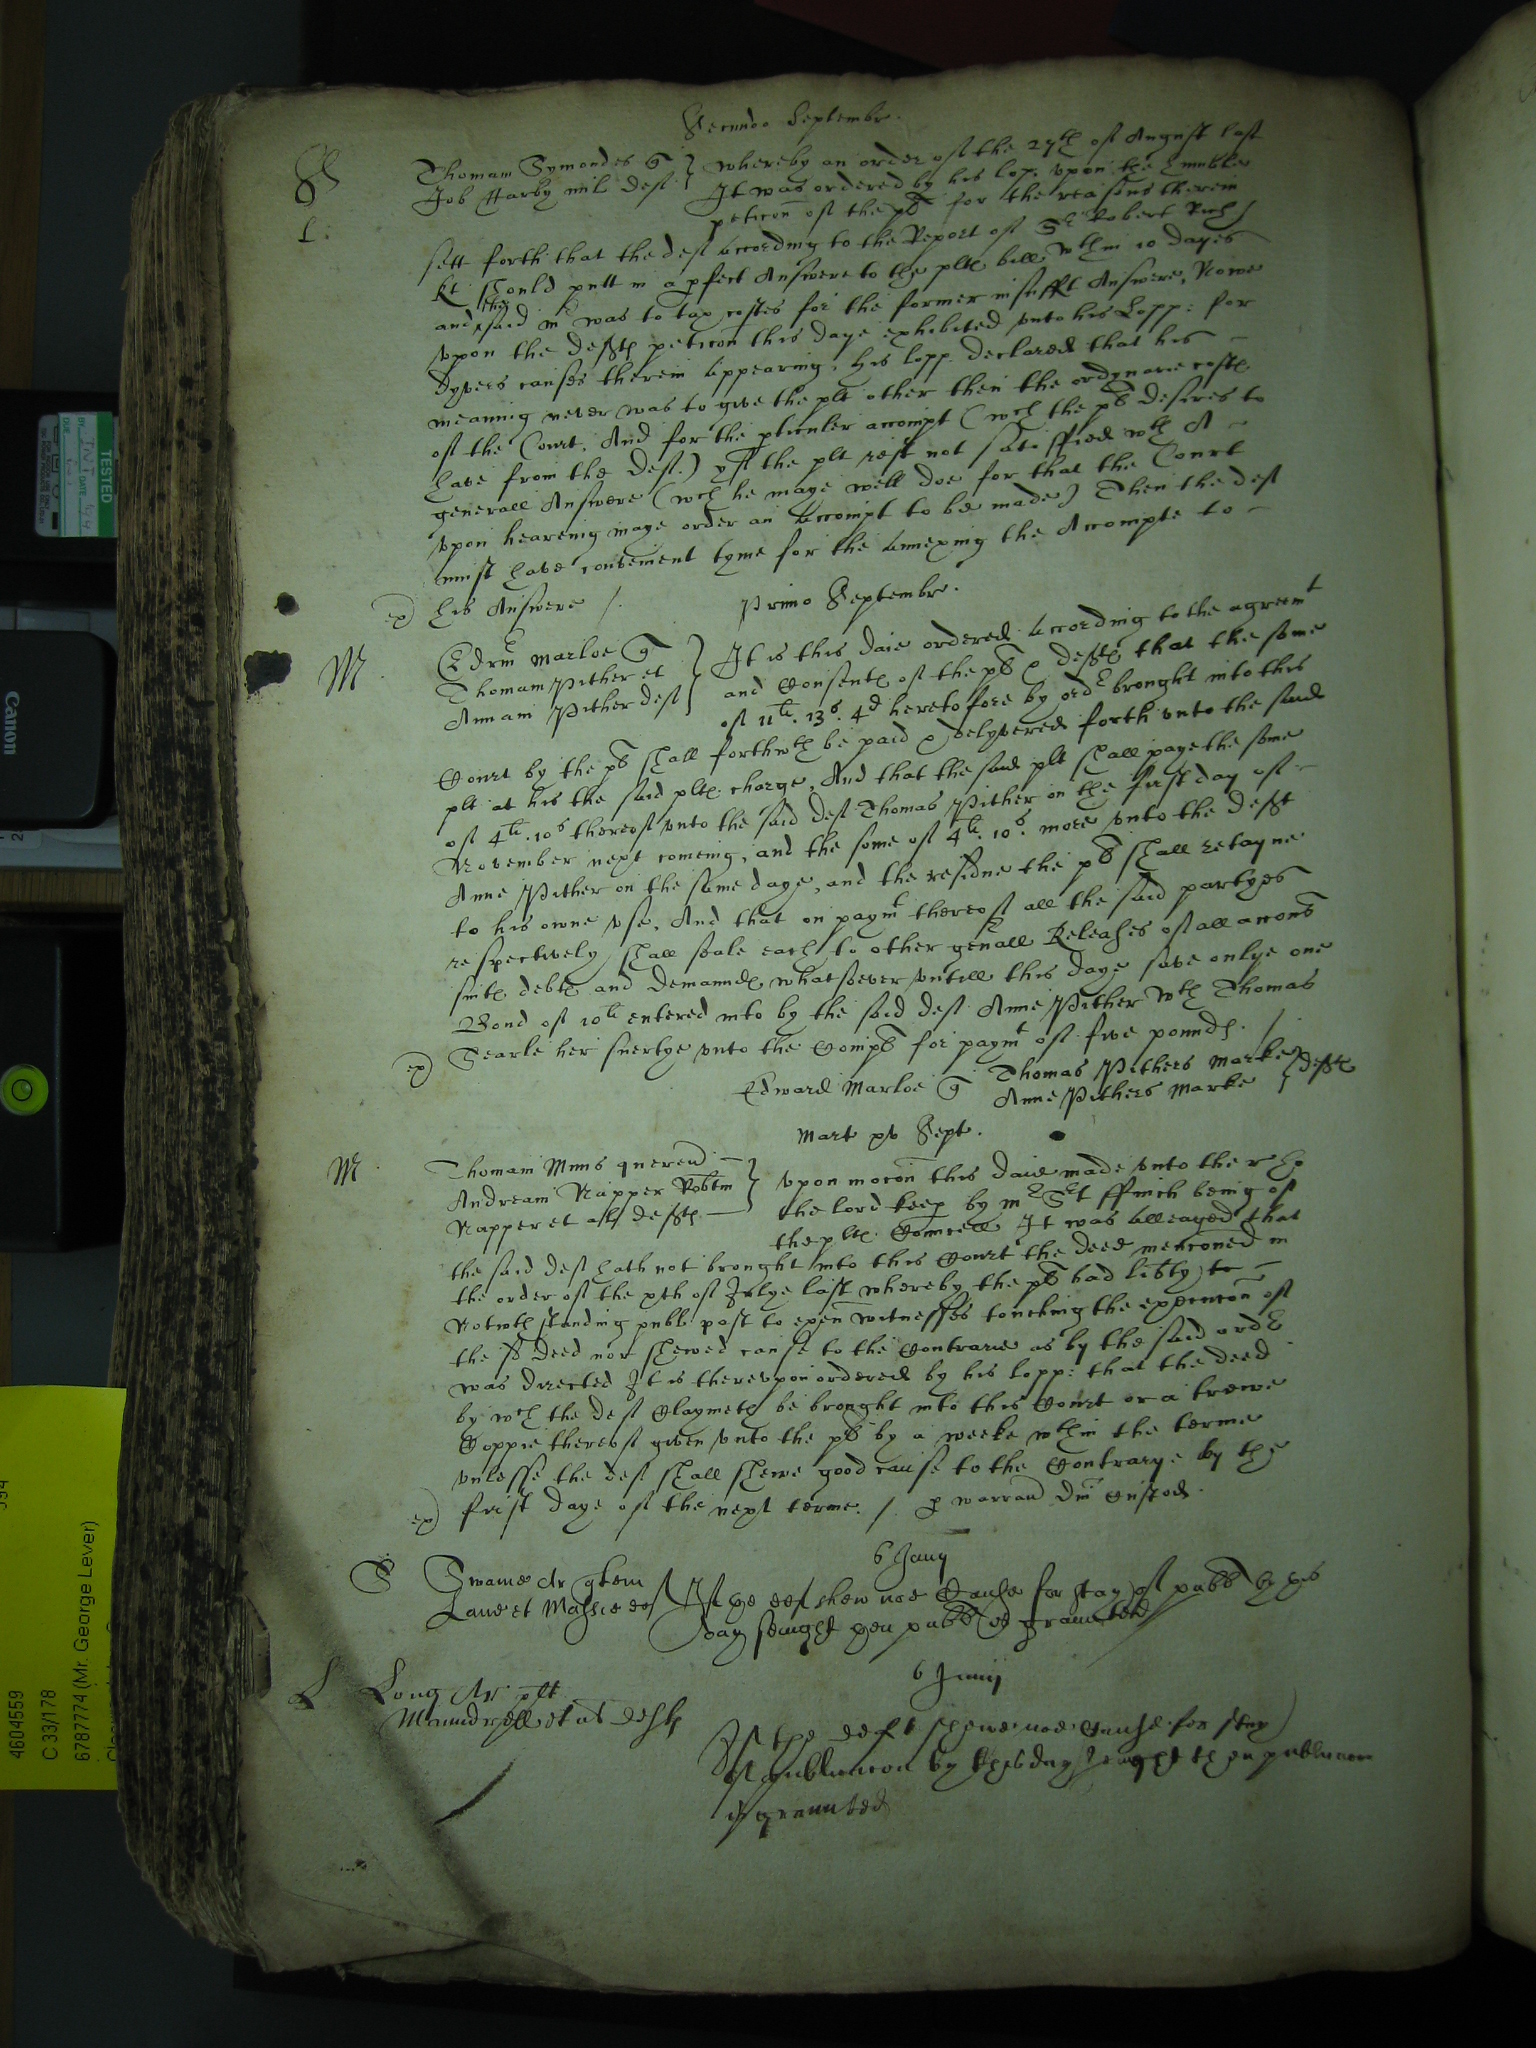 Secundo Septembr.
S
L:
Thomam Symondes q
Job Harby mil def
Whereby an order of the 27th of August last
It was ordered by his lop: upon the humble
peticon of the plt for the reasons therein
sett forth that the deft according to the Report of Sr Robert Rich
kt should putt in a pfect Answere to the plts bill wthin 10 dayes
and the said mr was to tax costes for the former insufft Answere, Nowe
upon the defts peticon this daye exhibited unto his Lopp: for
dyvers causes therein appearing, his lopp declared that his
meaning never was to give the plt other then the ordynarie costs
of the Court. And for the pticuler accompt (wch the plt desires to
have from the deft.) yf the plt rest not satisffied wth A
generall Answere (wch he maye well doe for that the Court
upon hearenig maye order an Accompt to be made) Then the deft
must have convenient tyme for the annexing the Accompte to
ex his Answere /.
Primo Septembr.
M
Edrum Marloe q
Thomam Pither et
Annam Pither deft
It is this daie ordered according to the agreemt
and Consents of the plt & defts that the some
of 11li. 13s. 4d heretofore by order brought into this
Court by the plt shall forthwth be paid & delyvered forth unto the said
plt at his the said plts charge, And that the said plt shall paye the some
of 4li. 10s thereof unto the said deft Thomas Pither on the first day of
November next comeing, and the some of 4li. 10s. more unto the deft
Anne Pither on the same daye, and the residue the plt shall retayne
to his owne use, And that on paymt thereof all the said partyes
respectively shall seale each to other genall Releases of all accons
suits debts and demaunds whatsoever untill this daye save onlye one
Bond of 10li entered into by the said deft Anne Pither wth Thomas
ex Searle her suertye unto the Complt for paymt of five pounds. /
Edward Marloe q
Thomas Pithers Marke
Anne Pithers Marke
defts
Mart xv Sept.
M
Thomam Mims querend
Andream Napper Robtm
Napper et al defts
Upon mocon this daie made unto the r. ho
the lord keep by mr Sert ffinch being of
the plts Councell It was alleaged that
the said deft hath not brought into this Court the deed menconed in
the order of the xth of Julye last whereby the plt had libty to
Notwth standing publ past to exen witnesses touching the execucon of
the sd deed nor shewed cause to the Contrarie as by the said order
was directed It is thereupon ordered by his lopp: that the deed
by wch the deft Claymeth be brought into this Court or a trewe
Coppie thereof given unto the plt by a weeke wthin the terme
unlesse the deft shall shewe good cause to the Contrarye by the
ex first daye of the next terme. /. p warrand Dni Custod.
6 Junij
S Swame Ar quem
Lane et Massie def
If the def shew noe Cause for stay of publ by this
day senight then publ is graunted
6 Junij
L Long Ar plt
Maundrell et al defts
If the deft shewe noe Cause for stay
of publicacon by this day senight then publicacon
is graunted
TESTED
BY INT DATE
DUE
Canon
4604559
C 33/178
6787774 (Mr. George Lever)